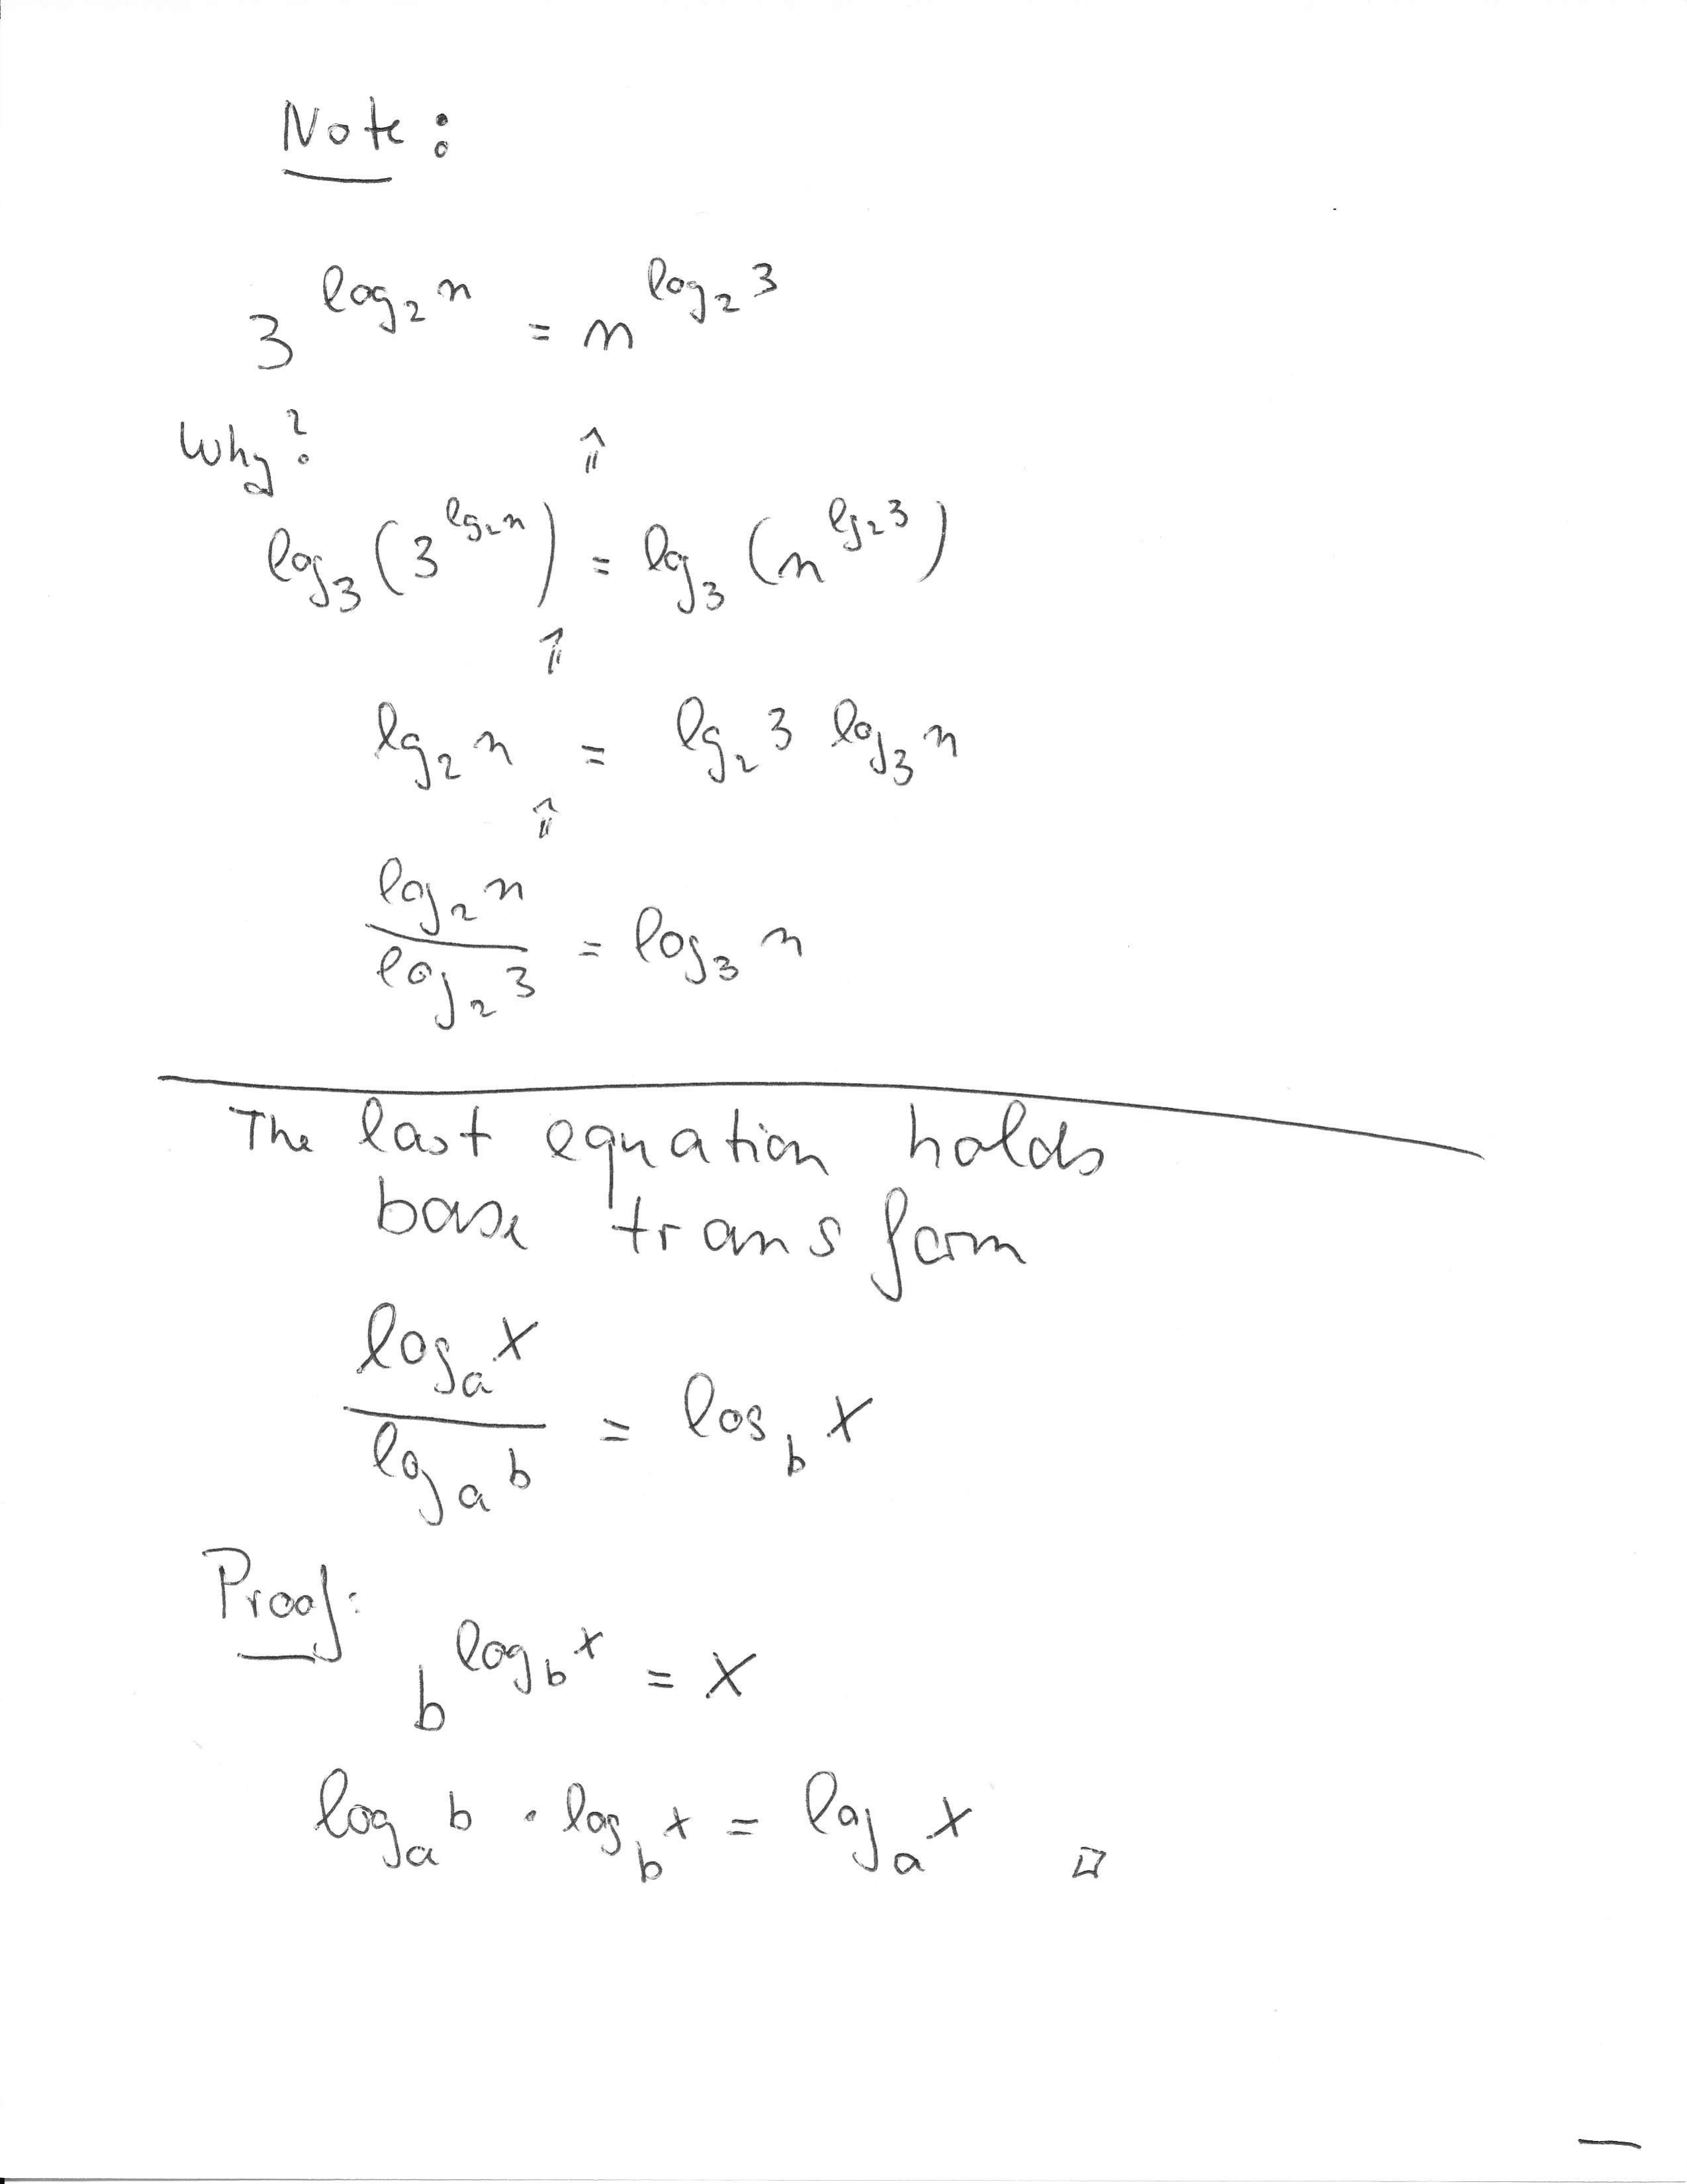 Note:
3^{log_2 n} = n^{log_2 3}
Why? ⇑
log_3 (3^{lg_2 n}) = log_3 (n^{lg_2 3})
⇑
lg_2 n = lg_2 3 log_3 n
⇑
\frac{log_2 n}{log_2 3} = log_3 n
The last equation holds
base transform
\frac{log_a x}{log_a b} = log_b x
Proof:
b^{log_b x} = x
log_a b · log_b x = log_a x □